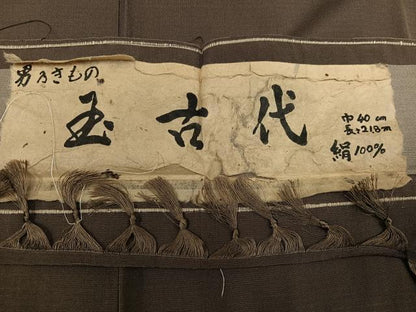 男乃きもの
玉古代
巾40cm
長サ21.8m
絹100%